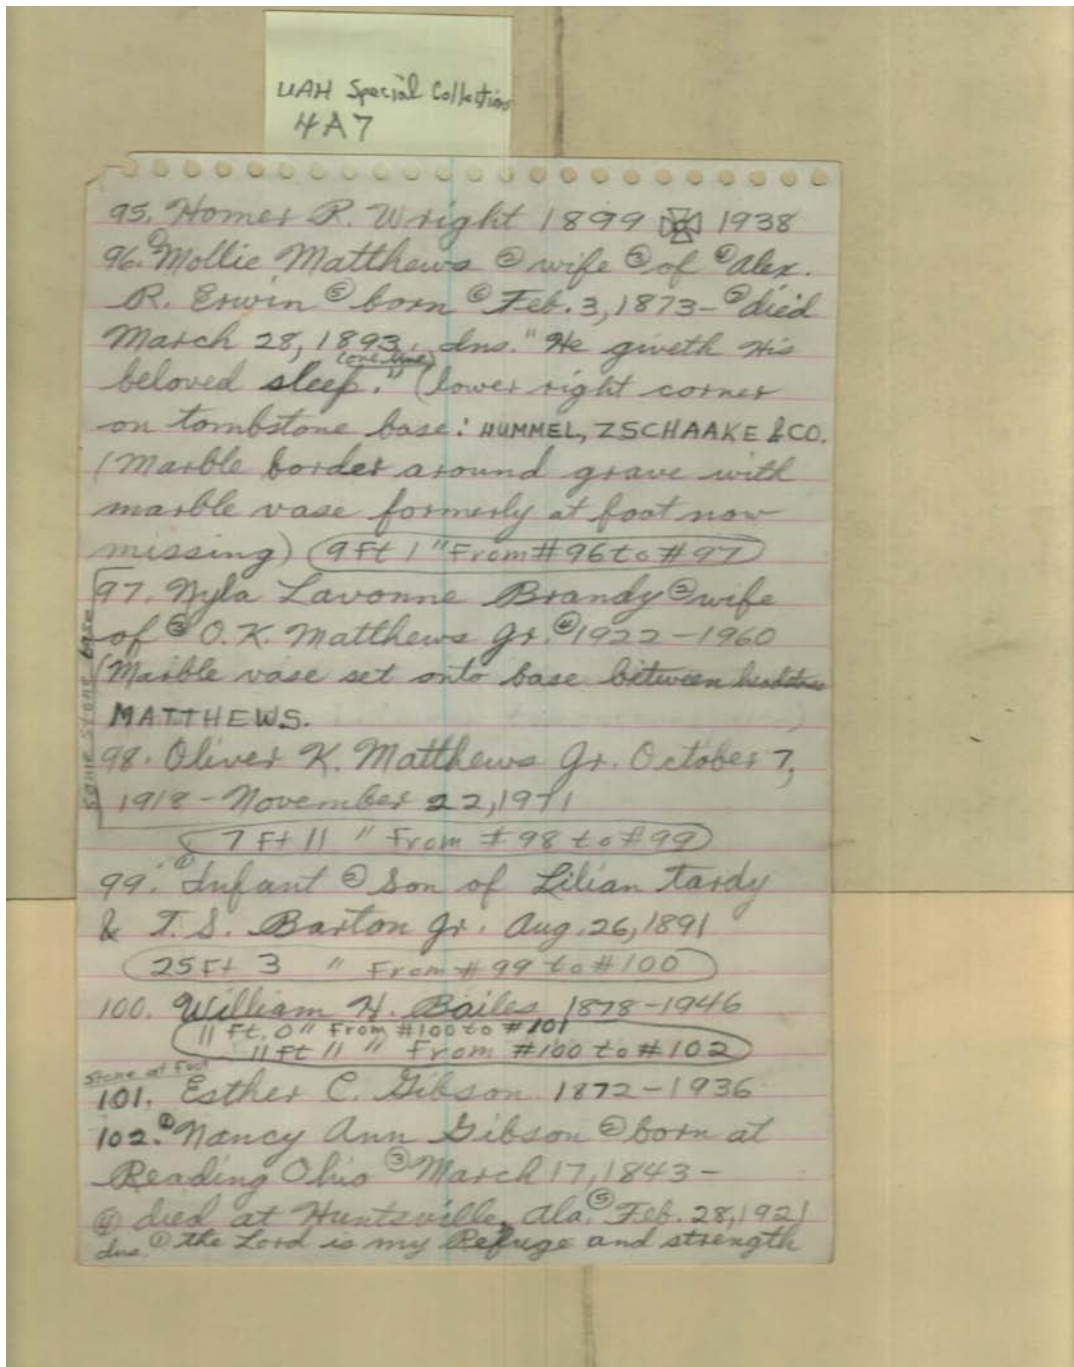 UAH Special Collections
4A7
95. Homer R. Wright 1899 1938
96. ① Mollie Matthews ② wife ③ of ④ Alex.
R. Erwin ⑤ born ⑥ Feb. 3, 1873- ⑦ died
March 28, 1893. Ins. "He giveth His
(one line)
beloved sleep." (lower right corner
on tombstone base: HUMMEL, ZSCHAAKE & CO.
(Marble border around grave with
marble vase formerly at foot now
missing) (9 Ft 1 " From # 96 to # 97)
97. Nyla Lavonne Brandy ② wife
of ③ O.K. Matthews Jr. ④ 1922-1960
(Marble vase set onto base between headstones
MATTHEWS.
same stone base
98. Oliver K. Matthews Jr. October 7,
1918 - November 22, 1971
7 Ft 11 " From # 98 to # 99
99. ① Infant ② Son of Lilian Tardy
& T. S. Barton Jr. Aug. 26, 1891
25 Ft 3 " From # 99 to # 100
100. William H. Bailes 1878-1946
11 Ft. 0" From #100 to #101
11 Ft 11 " From #100 to #102
Stone at Foot
101. Esther C. Gibson 1872-1936
102. ① Nancy Ann Gibson ② born at
Reading Ohio ③ March 17, 1843-
④ died at Huntsville, Ala. ⑤ Feb. 28, 1921
Ins. ① the Lord is my Refuge and strength